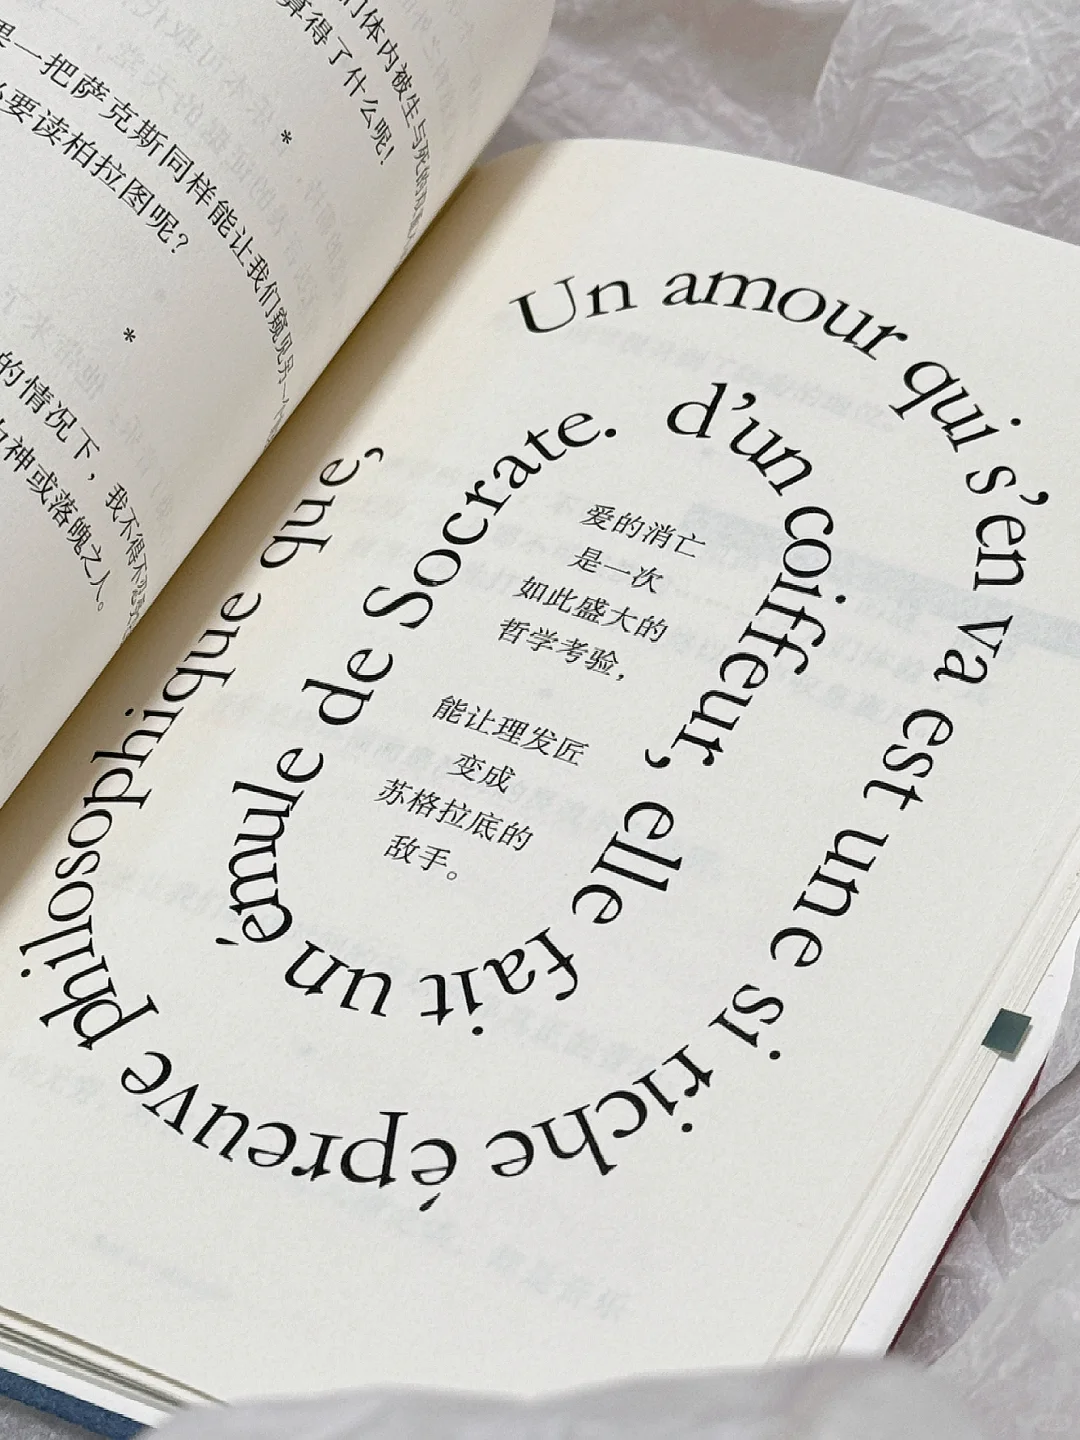 们体内被生与死的
算得了什么呢！
*
果一把萨克斯同样能让我们窥见另一个
么要读柏拉图呢？
*
的情况下，我不得不
神或落魄之人。
Un amour qui s'en va est une si riche épreuve philosophique que,
d'un coiffeur, elle fait un émule de Socrate.
爱的消亡
是一次
如此盛大的
哲学考验，
能让理发匠
变成
苏格拉底的
敌手。